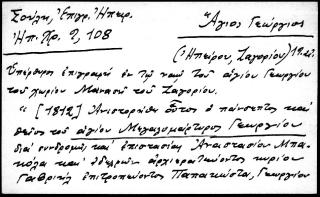 Σούλη, Ἐπιγρ. Ἠπειρ.
Ἠπ. Χρ. 9, 108
Ἅγιος Γεώργιος
(Ἠπείρου, Ζαγορίου)
Ὑπέρθυρος ἐπιγραφὴ ἐν τῷ ναῷ τοῦ ἁγίου Γεωργίου
τοῦ χωρίου Μανασσῆ τοῦ Ζαγορίου.
"[1812] Ἀνιστορήθη οὗτος ὁ πάνσεπτος καὶ
θεῖος τοῦ ἁγίου Μεγαλομάρτυρος Γεωργίου
διὰ συνδρομῆς καὶ ἐπιστασίας Ἀναστασίου Μπα-
κόλα καὶ ἀδελφῶν ἀρχιερατεύοντος κυρίου
Γαβριὴλ ἐπιτροπεύοντος Παπακώστα, Γεωργίου